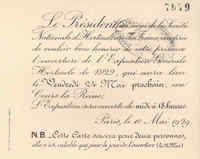 7979
Le Président
Nationale d'Horticulture de France vous prie
de vouloir bien honorer de votre présence
l'ouverture de l'Exposition Générale
Horticole de 1929, qui aura lieu
le Vendredi 24 Mai prochain, au
Cours la Reine.
L'Exposition sera ouverte de midi à 18 heures.
Paris, le 10 Mai 1929
N.B. Cette Carte servira pour deux personnes,
elle n'est valable que pour le jour de l'ouverture (24 Mai)